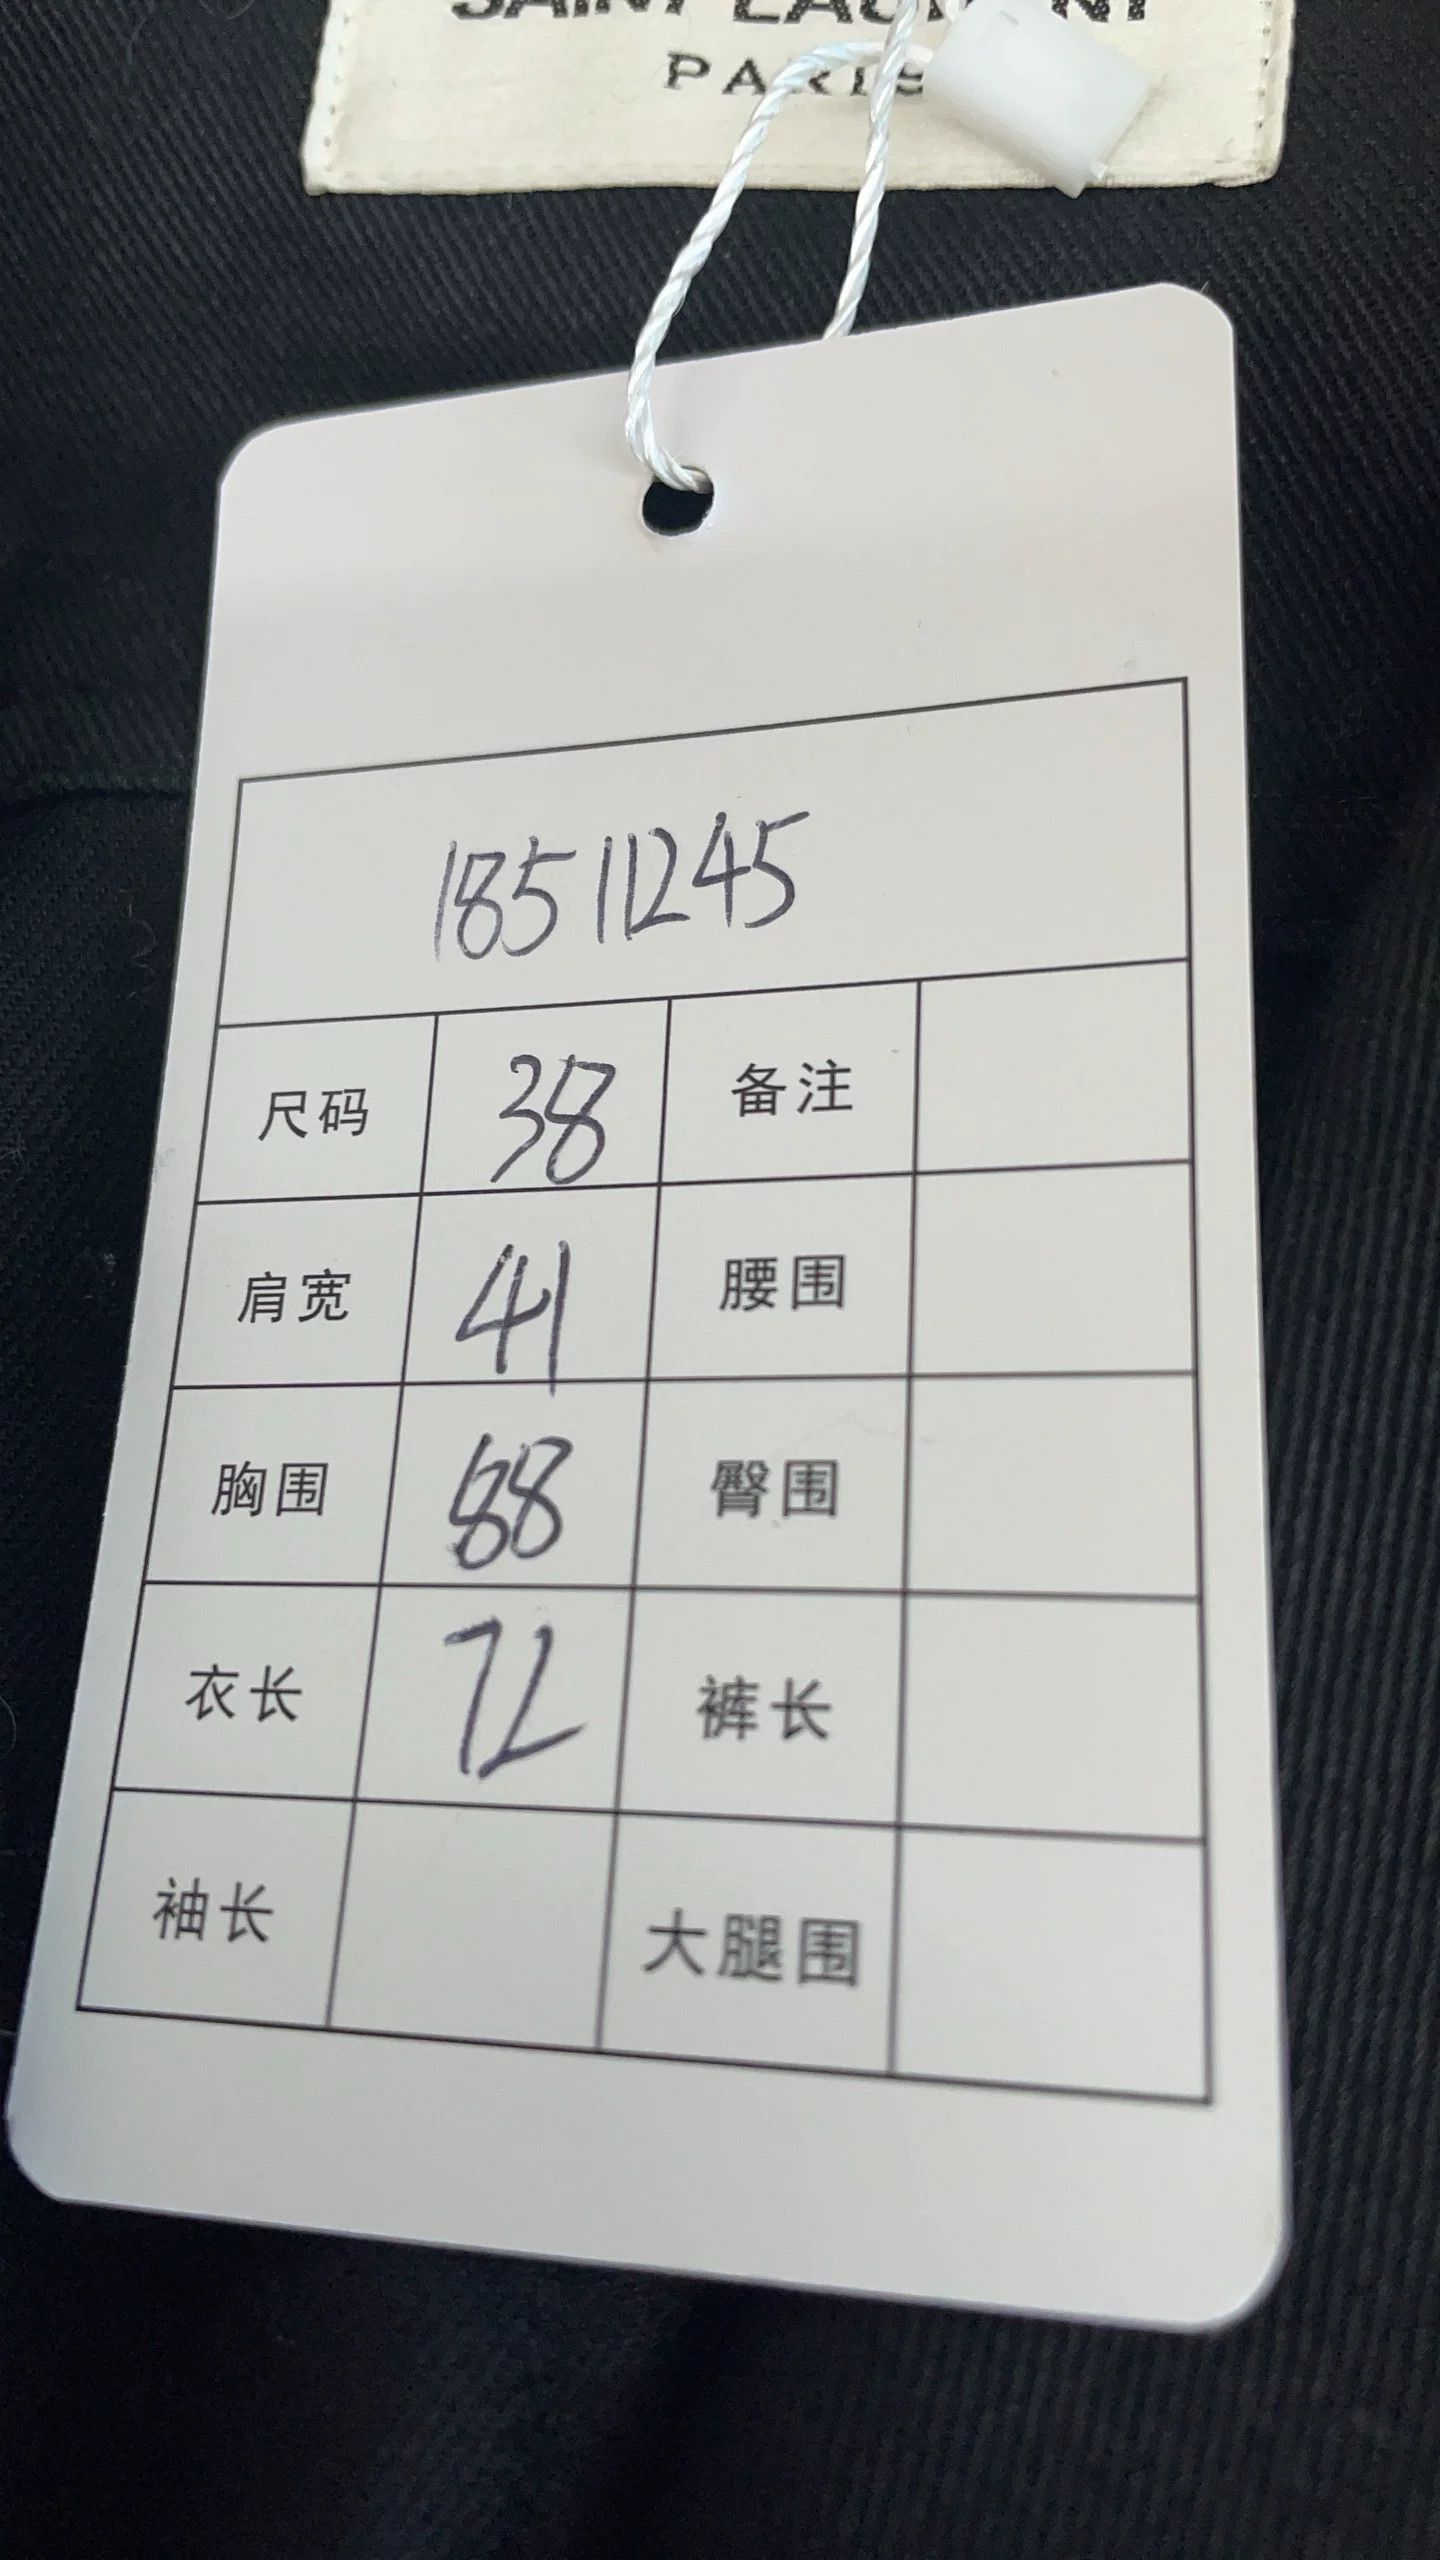 SAINT LAURENT
PARIS
18511245
尺码 38 备注
肩宽 41 腰围
胸围 88 臀围
衣长 72 裤长
袖长 大腿围